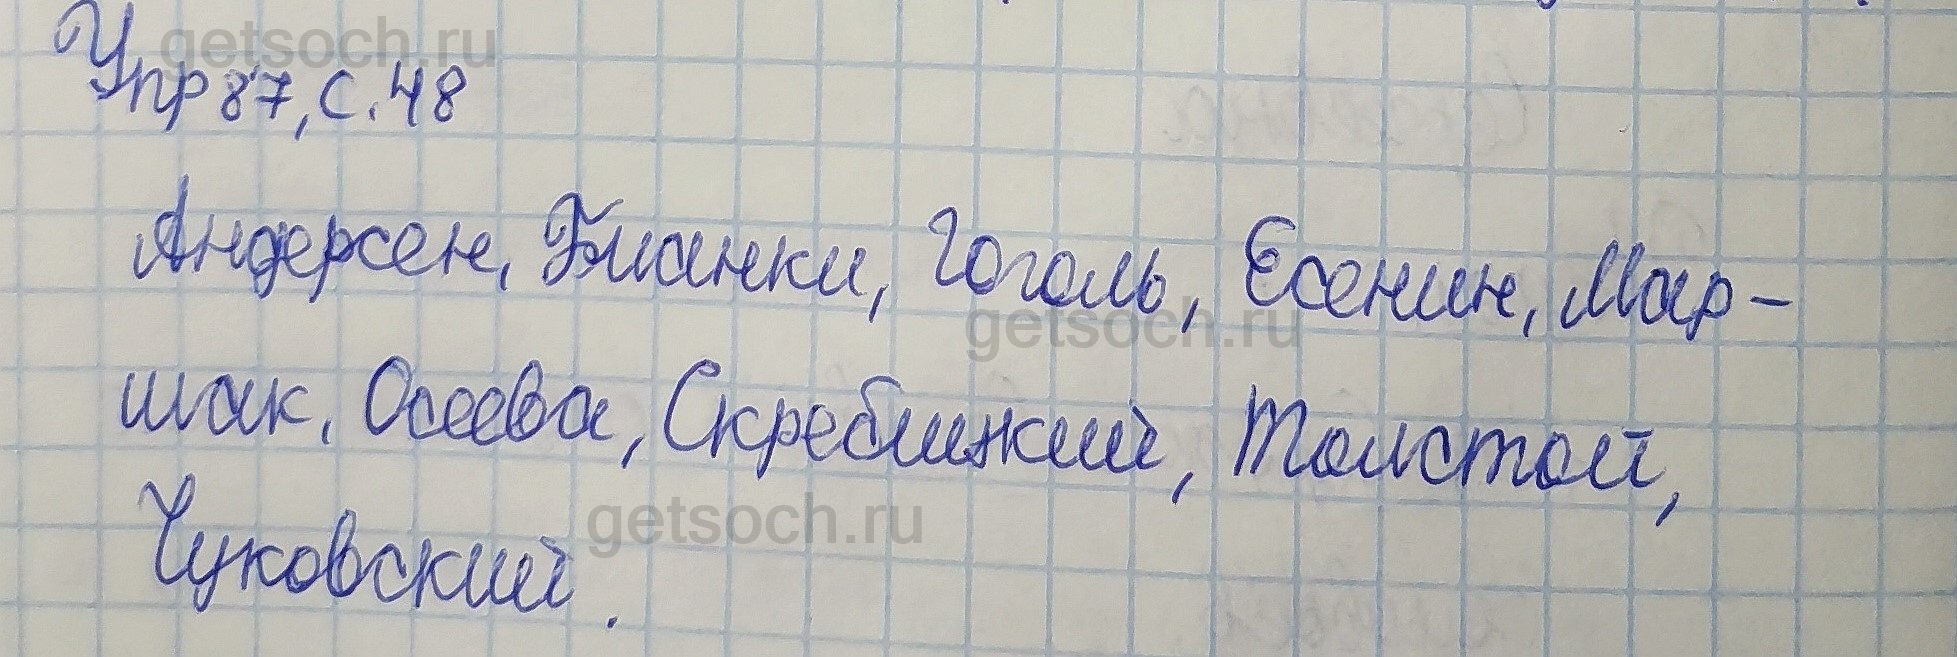 getsoch.ru
Упр 87, с. 48
Андерсен, Бианки, Гоголь, Есенин, Мар-
getsoch.ru
шак, Осеева, Скребицкий, Толстой,
getsoch.ru
Чуковский.